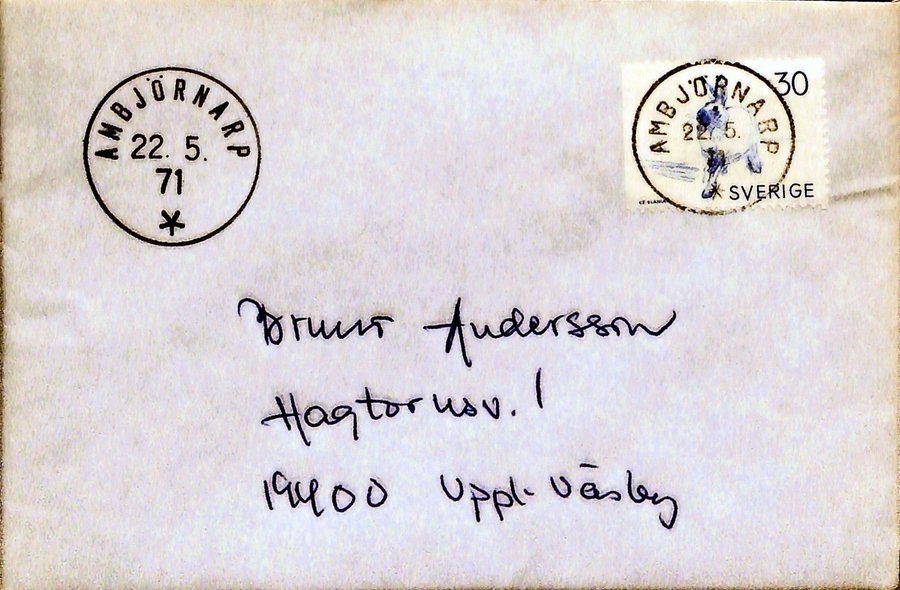 AMBJÖRNARP
22. 5.
71
AMBJÖRNARP
22. 5.
71
30
SVERIGE
Bruno Andersson
Hagtornsv. 1
19400 Uppl. Väsby